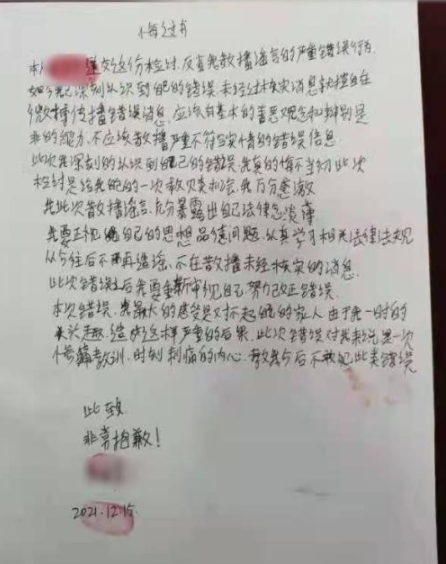 悔过书
本人 递交这份检讨，反省我散播谣言的严重错误行为
如今我已深刻认识到自己的错误，未经过核实消息就擅自在
微博传播错误消息，应该有基本的善恶观念和辩别是
非的能力，不应该散播严重不符合实情的错误信息
此次我深刻的认识到自己的错误，我真的悔不当初此次
检讨是给我自己的一次教育和机会，我万分感激
我此次散播谣言，充分暴露出自己法律意淡薄
我要正视自己的思想品德问题，认真学习相关法律法规
从今往后不再造谣，不在散播未经核实的消息
此次错误后我要重新审视自己，努力改正错误
本次错误，我最大的感受是对不起我的家人由于我一时的
兴趣，造成这样严重的后果，此次错误对我来说是一次
教训，时刻刺痛的内心，教我今后不敢犯此类错误
此致
非常抱歉！
2021.12.15